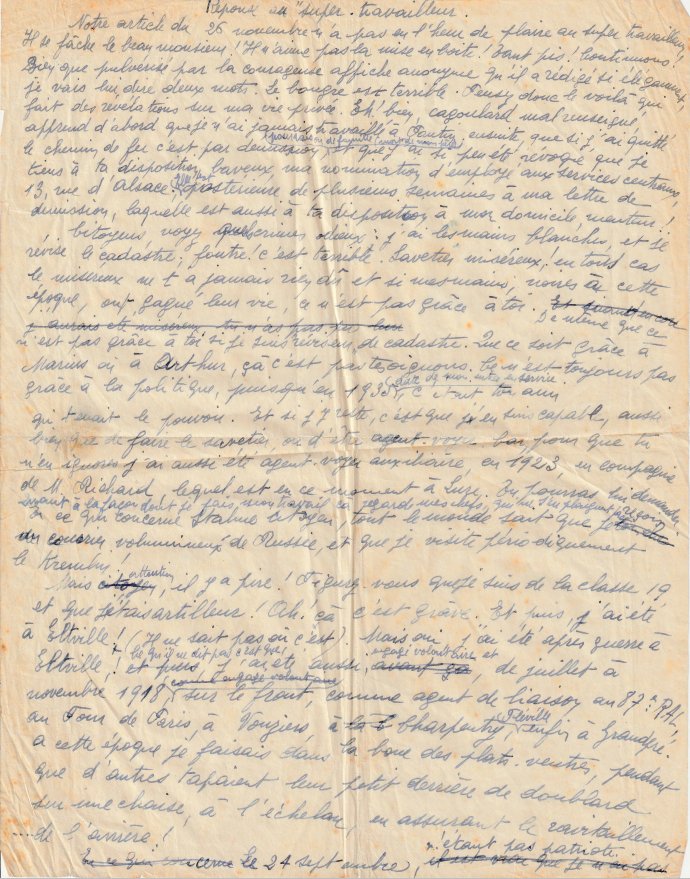 Réponse au "super-travailleur".
Notre article du 26 novembre n'a pas eu l'heur de plaire au super travailleur !
Il se fâche le beau monsieur ! Il n'aime pas la mise en boîte ! Tant pis ! Continuons.
Bien que pulvérisé par la courageuse affiche anonyme qu'il a rédigé si élégamment,
je vais lui dire deux mots. Le bougre est terrible. Pensez donc le voilà qui
fait des révélations sur ma vie privée. Eh ! bien, cagoulard mal renseigné,
apprend d'abord que je n'ai jamais travaillé à Pantin, ensuite, que si j'ai quitté
le chemin de fer c'est par démission, et que j'ai si peu été révoqué que je
tiens à ta disposition, baveux, ma nomination d'employé aux services centraux,
13, rue d'Alsace, postérieure de plusieurs semaines à ma lettre de
démission, laquelle est aussi à ta disposition à mon domicile, menteur !
Citoyens, voyez quels crimes odieux : j'ai les mains blanches, et je
révise le cadastre ; foutre ! c'est terrible. Savetier miséreux ! en tous cas
le miséreux ne t'a jamais rien dû et si mes mains, noires à cette
époque, ont gagné leur vie, ce n'est pas grâce à toi. Et quant
De même que ce
n'est pas grâce à toi si je suis réviseur de cadastre. Que ce soit grâce à
Marius ou à Arthur, çà c'est pas tes oignons. Ce n'est toujours pas
date de mon entrée en service
grâce à la politique, puisqu'en 1935, c'était ton ami
qui tenait le pouvoir. Et si j'y reste, c'est que j'en suis capable, aussi
bien que de faire le savetier ou d'être agent-voyer car pour que tu
n'en ignores j'ai aussi été agent-voyer auxiliaire, en 1923, en compagnie
de M. Richard lequel est en ce moment à Luzy. Tu pourras lui demander
quant à la façon dont je fais mon travail ça regard mes chefs, qui ne s'en plaignent
En ce qui concerne Staline citoyen tout le monde sait que je reçois
un courrier volumineux de Russie, et que je visite périodiquement
le Kremlin !
Mais citoyen, attention, il y a pire ! Figurez vous que je suis de la classe 19,
et que j'étais artilleur ! Oh ! çà c'est grave. Et puis, j'ai été
à Eltville ! (Il ne sait pas où c'est) Mais oui, j'ai été après guerre à
Ce qu'il ne dit pas c'est que
Eltville ! et puis, j'ai été aussi, engagé volontaire et avant ça, de juillet à
novembre 1918, comme engagé volontaire sur le front, comme agent de liaison au 87e RAL,
au Four de Paris, à Vouziers à la Charpentry, Réville enfin à Grandpré.
à cette époque je faisais dans la boue des plats-ventres, pendant
que d'autres tapaient leur petit derrière de doublard
sur une chaise, à l'échelon, en assurant le ravitaillement
.....de l'arrière !
n'étant pas patriote.
En ce qui concerne le 24 septembre, il est vrai que je n'ai pas